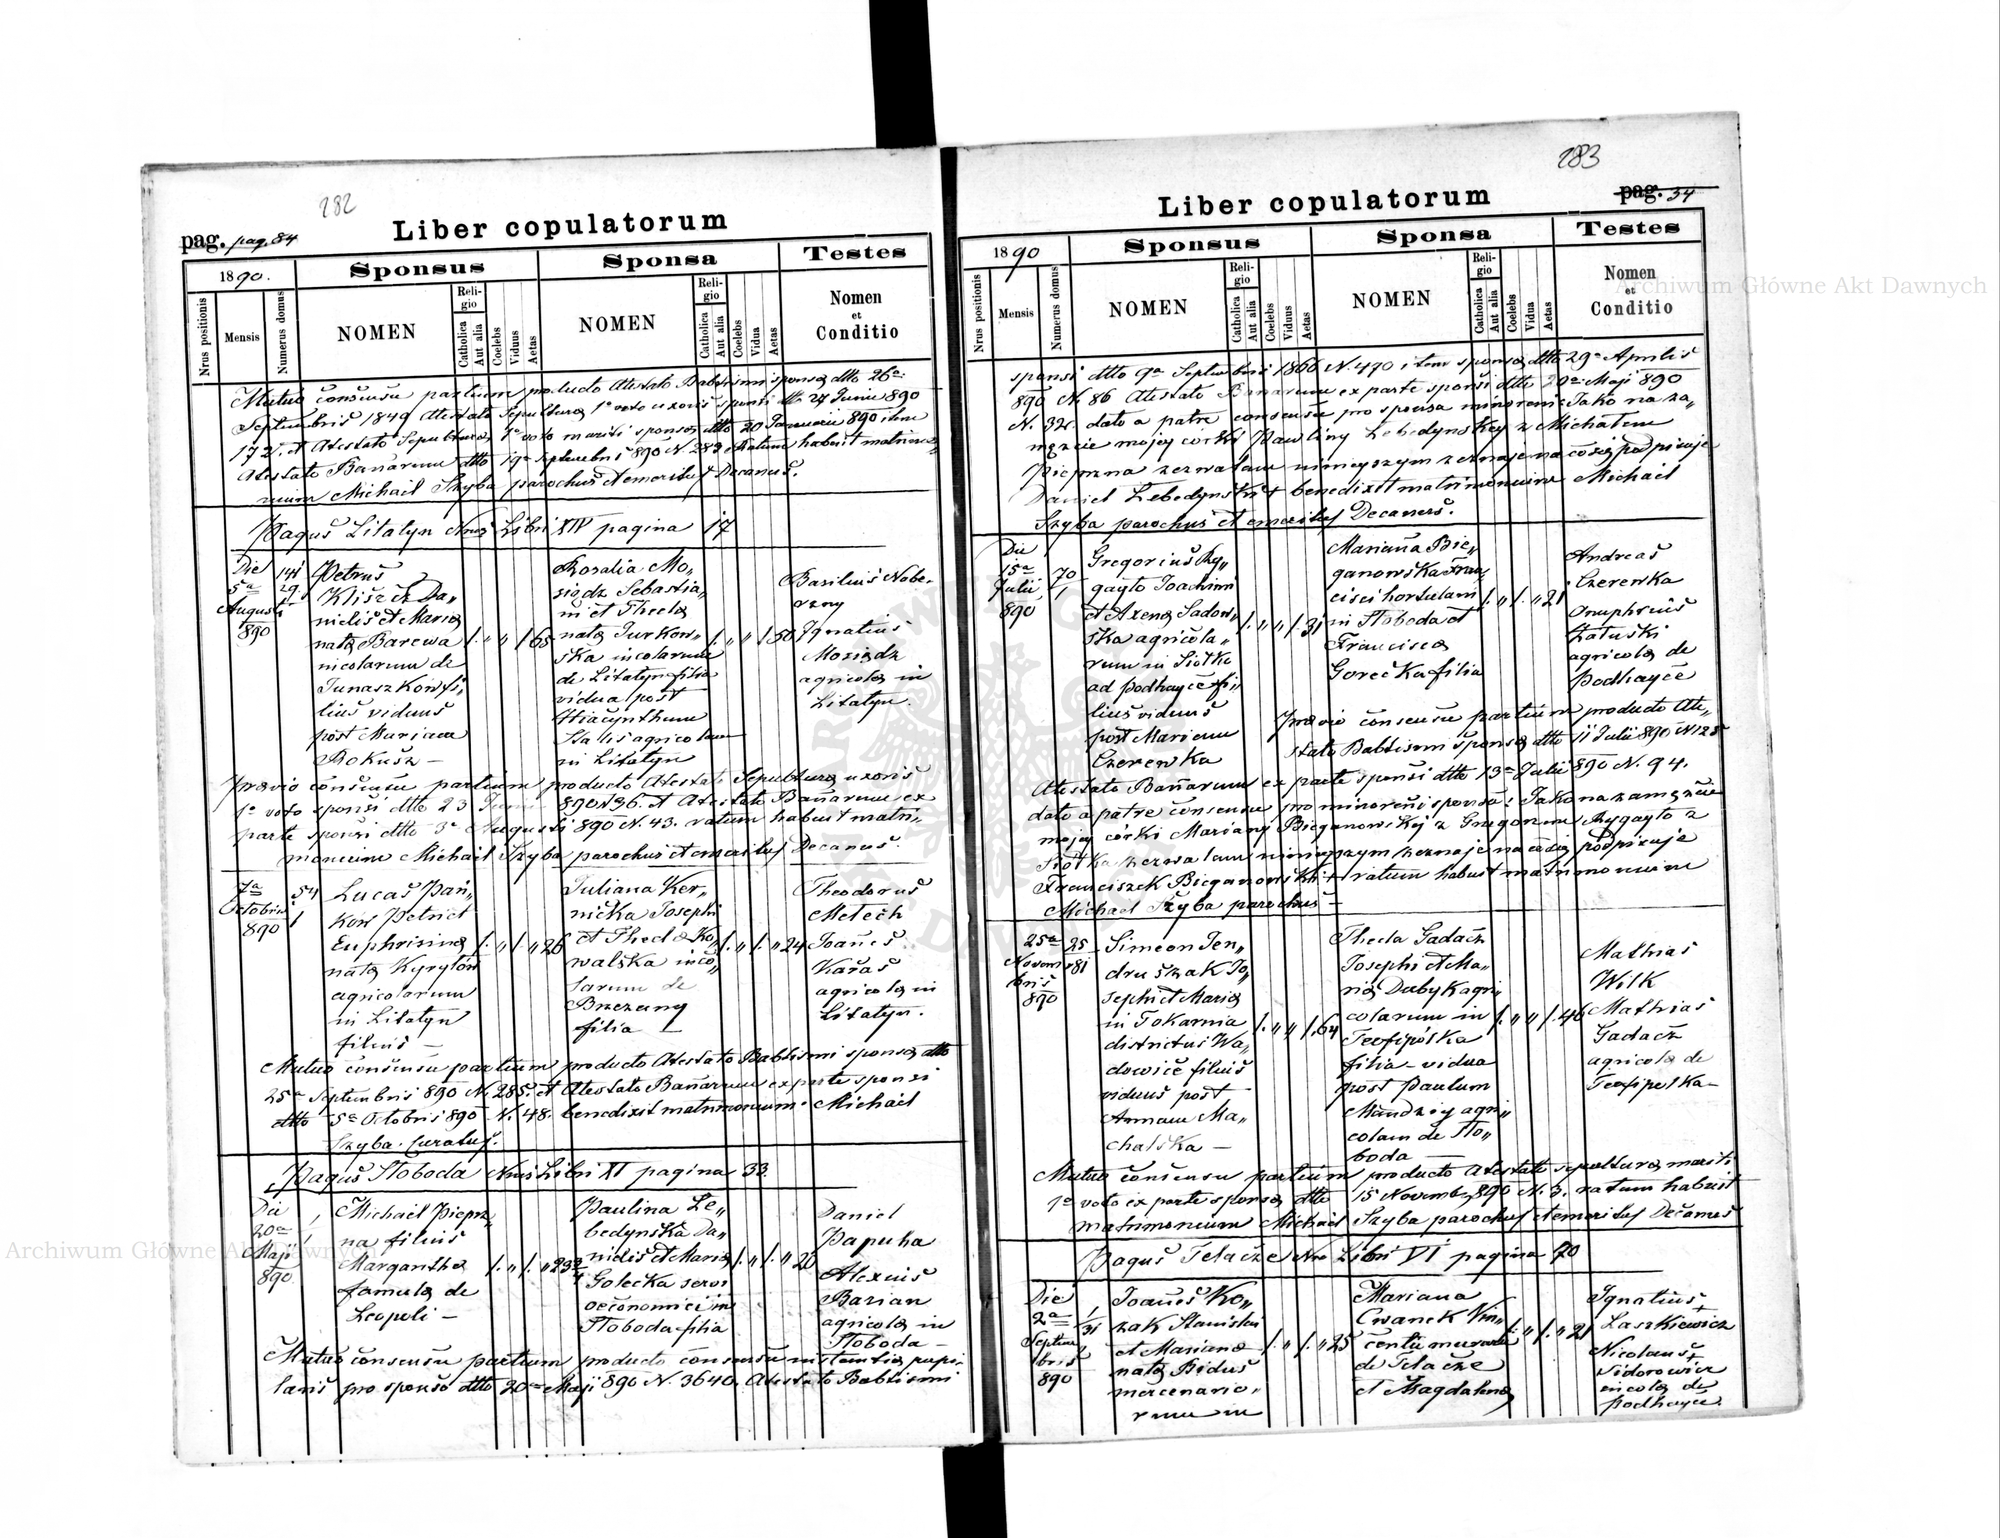 282
pag. pag. 84
Liber copulatorum
1890.
Sponsus
Sponsa
Testes
Nrus positionis
Mensis
Numerus domus
NOMEN
Religio
Catholica
Aut alia
Coelebs
Viduus
Aetas
NOMEN
Religio
Catholica
Aut alia
Coelebs
Vidua
Aetas
Nomen
et
Conditio
Mutuo consensu partium producto Atestato Babtismi sponsa dtto 26a
Septembris 1849 Atestato Sepultura 1o voto uxoris sponsi dtto 27 Junii 890
172, et Atestato Sepultura 1o voto mariti sponsa dtto 20 Januarii 890 item
Atestato Banarum dtto 19a Septembris 890 N. 283 Ratum habuit matrimo„
nium Michael Szyba parochus et emeritus Decanus.
Pagus Litatyn Nrus Libri XIV pagina 17
Die
5a
Augusti
890
141
29
Petrus
Kliszcz Da„
nielis et Maria
nata Barewa
nicolarum de
Junaszkow fi„
lius viduus
post Mariam
Rokusz —
65
Rosalia Mo„
siądz Sebastia„
ni et Thecla
nata Jurkow„
ska incolarum
de Litatyn filia
vidua post
Hiacynthum
agricolam
in Litatyn
50
Basilius Nabe„
rzny
Ignatius
Mosiądz
agricola in
Litatyn.
Prævio consensu partium producto Atestato Sepultura uxoris
1o voto sponsi dtto 23 Junii 890 N 36. et Atestato Banarum ex
parte sponsi dtto 3a Augusti 890 N. 43. ratum habuit matri„
monium Michael Szyba parochus et emeritus Decanus.
7a
Octobris
890
54
1
Lucas Pań„
kow Petri et
Euphrisina
nata Kyrylów
agricolarum
in Litatyn
filius —
26
Juliana Ker„
nicka Josephi
et Thecla Ko„
walska inco„
larum de
Brzezany
filia —
24
Theodorus
Melech
Joanes
Karas
agricola in
Litatyn.
Mutuo consensu partium producto Atestato Babtismi sponsa dtto
25a Septembris 890 N. 285. et Atestato Banarum ex parte sponsi
dtto 5a Octobris 890 N. 48. benedixit matrimonium Michael
Szyba. Curatus.
Pagus Słoboda Nrus Libri XI pagina 33.
Die
20a
Maji
890
1
Michael Pieprz„
na filius
Margaritha
famula de
Leopoli —
Paulina Le„
bedynska Da„
nielis et Maria
Golecka servi
oeconomici in
Słoboda filia
20
Daniel
Papuha
Alexius
Barian
agricola in
Słoboda —
Mutuo consensu partium producto consensu instantia pupi„
laris pro sponso dtto 20a Maji 890 N. 3640. Atestato Babtismi
283
Liber copulatorum
pag. 34
1890
Sponsus
Sponsa
Testes
Nrus positionis
Mensis
Numerus domus
NOMEN
Religio
Catholica
Aut alia
Coelebs
Viduus
Aetas
NOMEN
Religio
Catholica
Aut alia
Coelebs
Vidua
Aetas
Nomen
et
Conditio
sponsi dtto 9a Septembris 1866 N. 490 item sponsa dtto 29a Aprilis
890 N. 86 Atestato Banarum ex parte sponsi dtto 20a Maji 890
N. 32. dato a patre consensu pro sponsa minoreni: Jako na za„
męzcie mojej córki Pawliny Lebedynskej z Michałem
Pieprzna zezwalam niniejszym zeznaje na co się podpisuje
Daniel Lebedynski + benedixit matrimonium Michael
Szyba parochus et emeritus Decanus.
Die
15a
Julii
890
70
1
Gregorius Ry„
gayło Joachimi
et Axena Sadow„
ska agricola„
rum in Siołko
ad Podhayce fi„
lius viduus
post Mariam
Czerewka
31
Mariana Bie„
ganowska Fran„
cisci hortulani
in Słoboda et
Francisca
Gorecka filia
21
Andreas
Czerewka
Onuphrius
Załuski
agricola de
Podhayce
Prævio consensu partium producto Ate„
stato Babtismi sponsa dtto 11 Julii 890 N 125
Atestato Banarum ex parte sponsi dtto 13a Julii 890 N. 94.
dato a patre consensu pro minoreni sponsa: Jako na zamęzcie
mojej córki Mariany Bieganowskej z Gregorzem Rygayło z
Siołka zezwalam niniejszym zeznaje na co się podpisuje
Franciszek Bieganowski + ratum habuit matrimonium
Michael Szyba parochus —
25a
Novem„
bris
890
25
81
Simeon Jen„
druszak Jo„
sephi et Maria
in Tokarnia
districtus Wa„
dowice filius
viduus post
Annam Ma„
chalska —
64
Thecla Gadacz
Josephi et Ma„
ria Dubyk agri„
colarum in
Teofipólka
filia vidua
post Paulum
Mandziy agri„
colam de Sło„
boda —
46
Mathias
Wilk
Mathias
Gadacz
agricola de
Teofipolka —
Mutuo consensu partium producto Atestato sepultura mariti
1o voto ex parte sponsa dtto 15 Novemb. 890 N. 3. ratum habuit
matrimonium Michael Szyba parochus et emeritus Decanus
Pagus Telacze Nro Libri VI pagina 70
Die
2a
Septem„
bris
890
1
31
Joanes Ko„
zak Stanislai
et Mariana
nata Bidus
mercenario„
rum in
25
Mariana
Cwanek Vin„
centii murarii
de Telacze
et Magdalena
21
Ignatius +
Laszkiewicz
Nicolaus +
Sidorowicz
incola de
Podhayce.
Archiwum Główne Akt Dawnych
Archiwum Główne Akt Dawnych